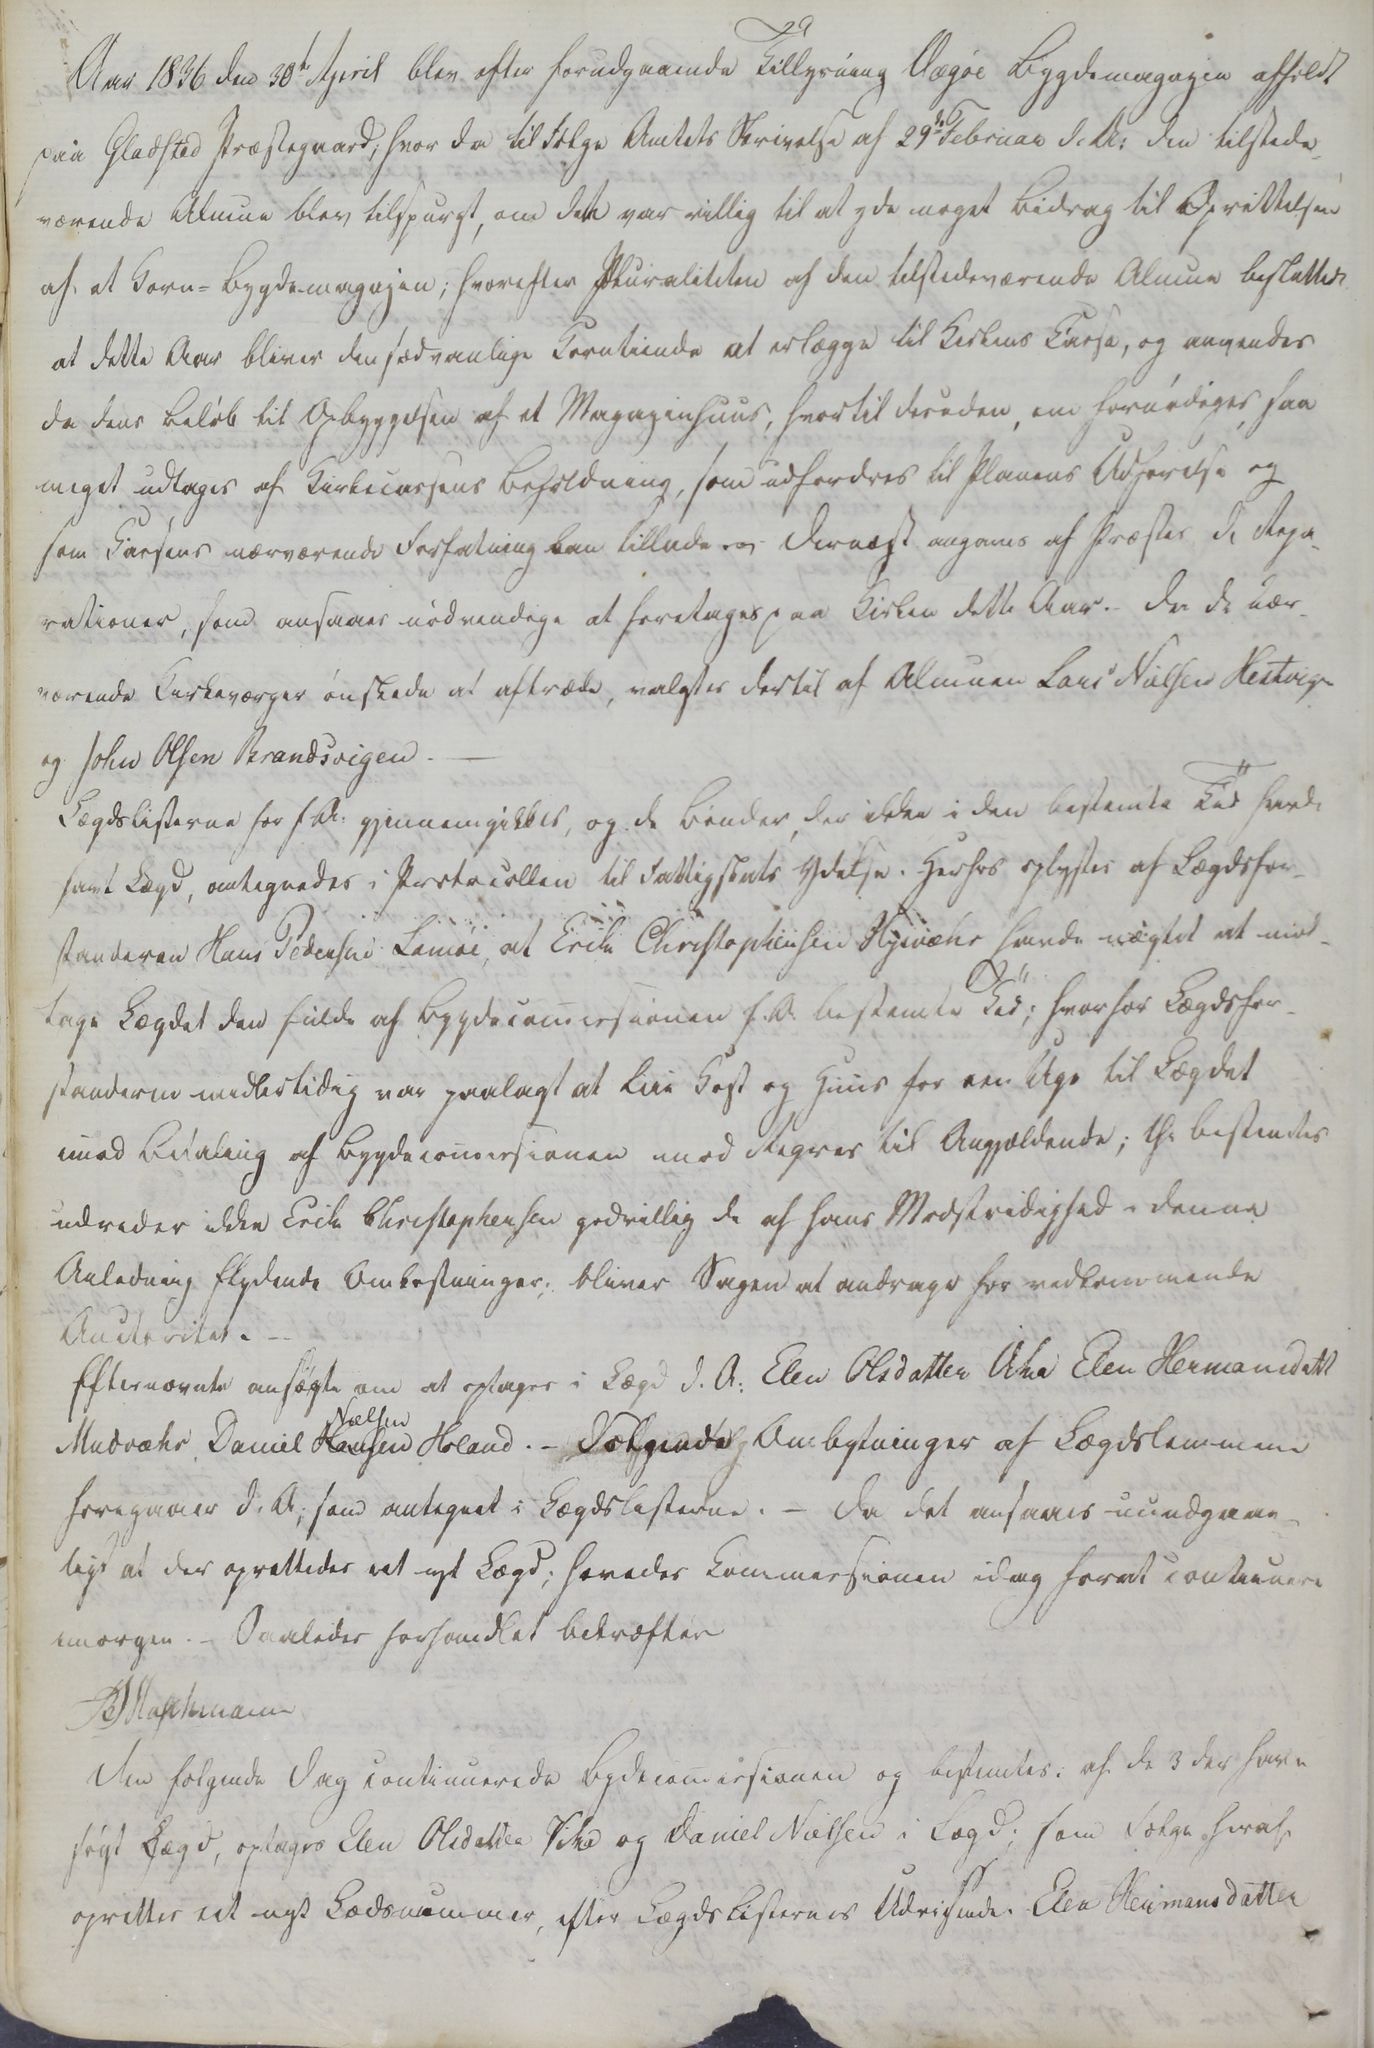 Aar 1836 den 30te April blev efter forudgaaende Tillysning Vægøe Bygdemagazin afholdt
paa Gladsted Præstegaard, hvor da til Følge Amtets Skrivelse af 29de Februar d. A. den tilstede-
værende Almue blev tilspurgt, om den var villig til at yde noget Bidrag til Oprettelsen
af et Korn-Bygdemagazin; hvorefter Pluraliteten af den tilstedeværende Almue besluttede
at dette Aar bliver den sædvanlige Korntiende at erlægge til Kirkens Casse, og anvendes
da dens Beløb til Opbyggelsen af et Magazinhuus, hvortil desuden, om fornødiges, saa
meget udtages af Kirkecassens Beholdning, som udfordres til Planens Udførelse og
som Cassens nærværende Forfatning kan tillade. Dernæst angaves af Præsten de Repa-
rationer, som ansaaes nødvendige at foretages paa Kirken dette Aar. – Da de nær-
værende Kirkeværger ønskede at aftræde, valgtes dertil af Almuen Lars Nielsen Hestvig
og John Olsen Brandsvigen. —
Lægdslisterne for f. A. gjennemgikkes, og de Bønder, der ikke i den bestemte Tid havde
havt Lægd, antegnedes i Protocollen til Fattigskats Ydelse. Herhos oplystes af Lægdsfor-
standeren Hans Pedersen Lamøe, at Erik Christophersen havde nægtet at mod-
tage Lægdet den fulde af Bygdecommissionen f. A. bestemte Tid; hvorfor Lægdsfor-
standeren midlertidig var paalagt at leie Kost og Huus for een Uge til Lægdet
mod Betaling af Bygdecommissionen med Regres til Angjældende; thi bestemtes
udreder ikke Erik Christophersen godvillig de af hans Modstridighed i denne
Anledning flydende Omkostninger, bliver Sagen at andrage for vedkommende
Auctoritet. –
Efternævnte ansøgte om at optages i Lægd d. A: Elen Olsdatter Vika Elen Hermansdatt
Madvæhr, Daniel Hansen Nielsen Holand. – Følgende Ombytninger af Lægdslemmene
foregaaer d. A, som antegnet i Lægdslisterne. – Da det ansaaes uundgaae-
ligt at der oprettedes eet nyt Lægd; hævedes Commissionen idag forat continuere
imorgen. – Saaledes forhandlet bekræfter
Maschmann
Den følgende Dag continuerede Bydecommissionen og bestemtes: af de 3 der have
søgt Lægd, optages Elen Olsdatter Vika og Daniel Nielsen i Lægd; som Følge heraf
oprettes eet nyt Lædsnummer, efter Lægdslisternes Udvisende. Elen Hermansdatter